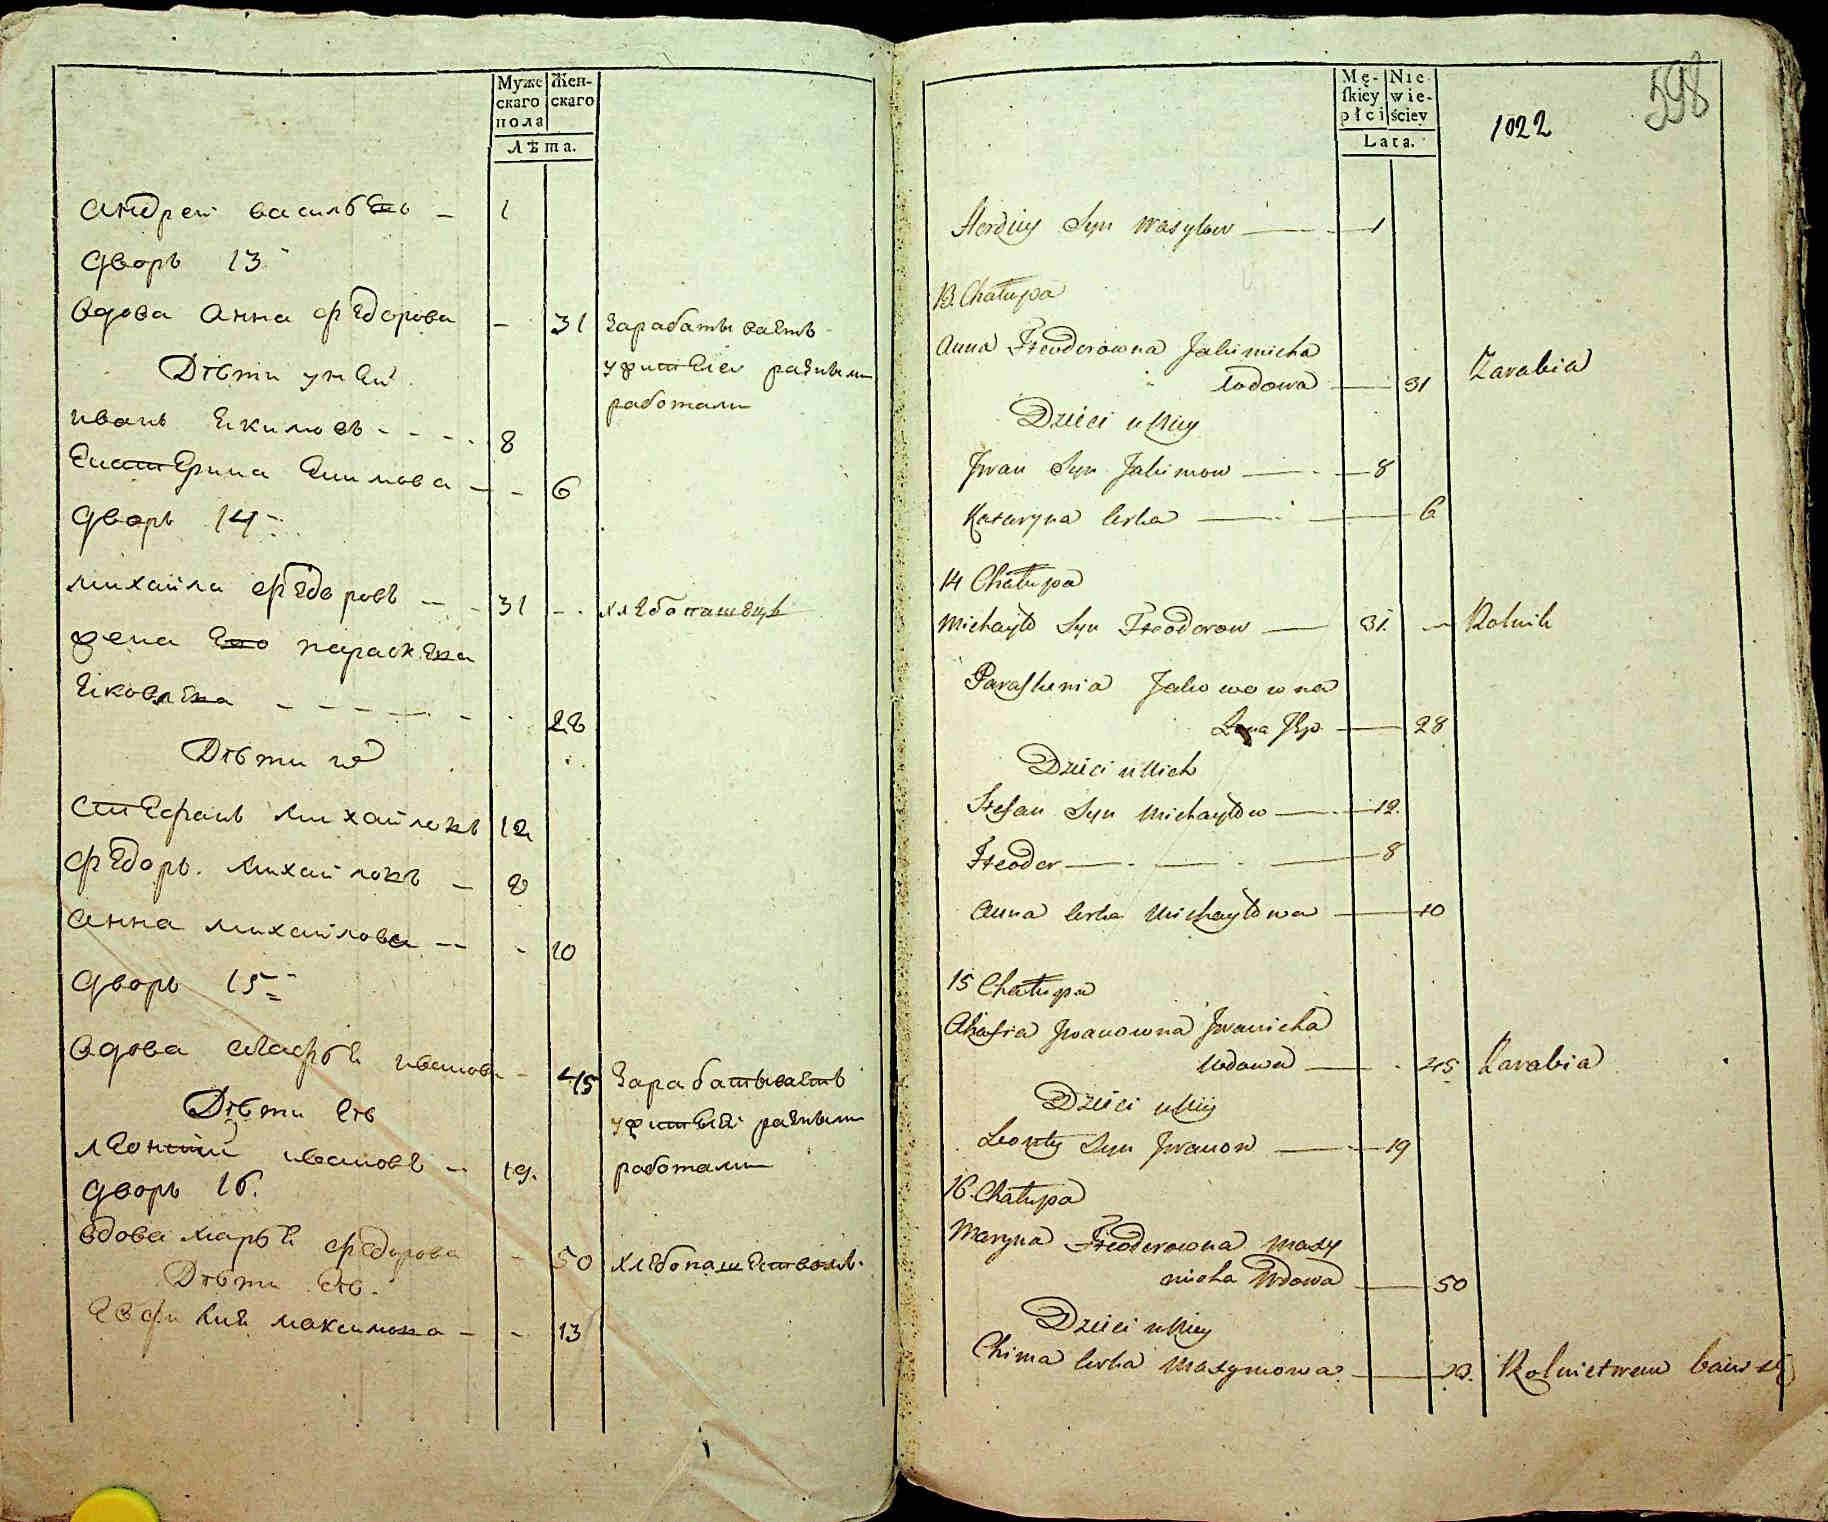 Муже
скаго
пола
Жен-
скаго
Лѣта.
Андрей васильевъ - 1
дворъ 13
вдова Анна Федорова - 31 зарабатываетъ
Дѣти у ней
разными
работами
иванъ Екимовъ - - - - 8
Екатерина Екимова - - 6
дворъ 14
михайла Федоровъ - - 31 - хлебопашецъ
жена Его параскева
Яковлева - - - - - - 28
Дѣти их
Стефанъ Михайловъ 12
Федоръ Михайловъ - 8
Анна михайлова - - 10
дворъ 15
вдова Агафья иванова - 45 Зарабатываетъ
Дѣти Ея
разными
леонтий ивановъ - 19.
работами
дворъ 16.
вдова марья Федорова - 50 хлебопашествомъ.
Дѣти Ея.
максимова - - 13
Mę-
skiey
płci
Nie
wie-
ściey
Lata.
1022
598
Syn Wasylow 1
13 Chałupa
Anna Fteodorowna Jakimicha
Wdowa 31 Zarabia
Dzieci u Niey
Jwan Syn Jakimow 8
Kataryna Corka 6
14 Chałupa
Michayło Syn Fteodorow 31. Rolnik
Paraskiewia Jakowowna
Zona Jego 28
Dzieci u Nich
Stefan Syn Michayłow 12.
Fteodor 8
Anna Corka Michayłowa 10
15 Chałupa
Ahafia Jwanowna Jwanicha
Wdowa 45 Zarabia
Dzieci u Niey
Leonty Syn Jwanow 19
16 Chałupa
Maryna Fteodorowna Maxy
micha Wdowa 50
Dzieci u Niey
Chima Corka Maxymowa 13. Rolnictwem bawi się